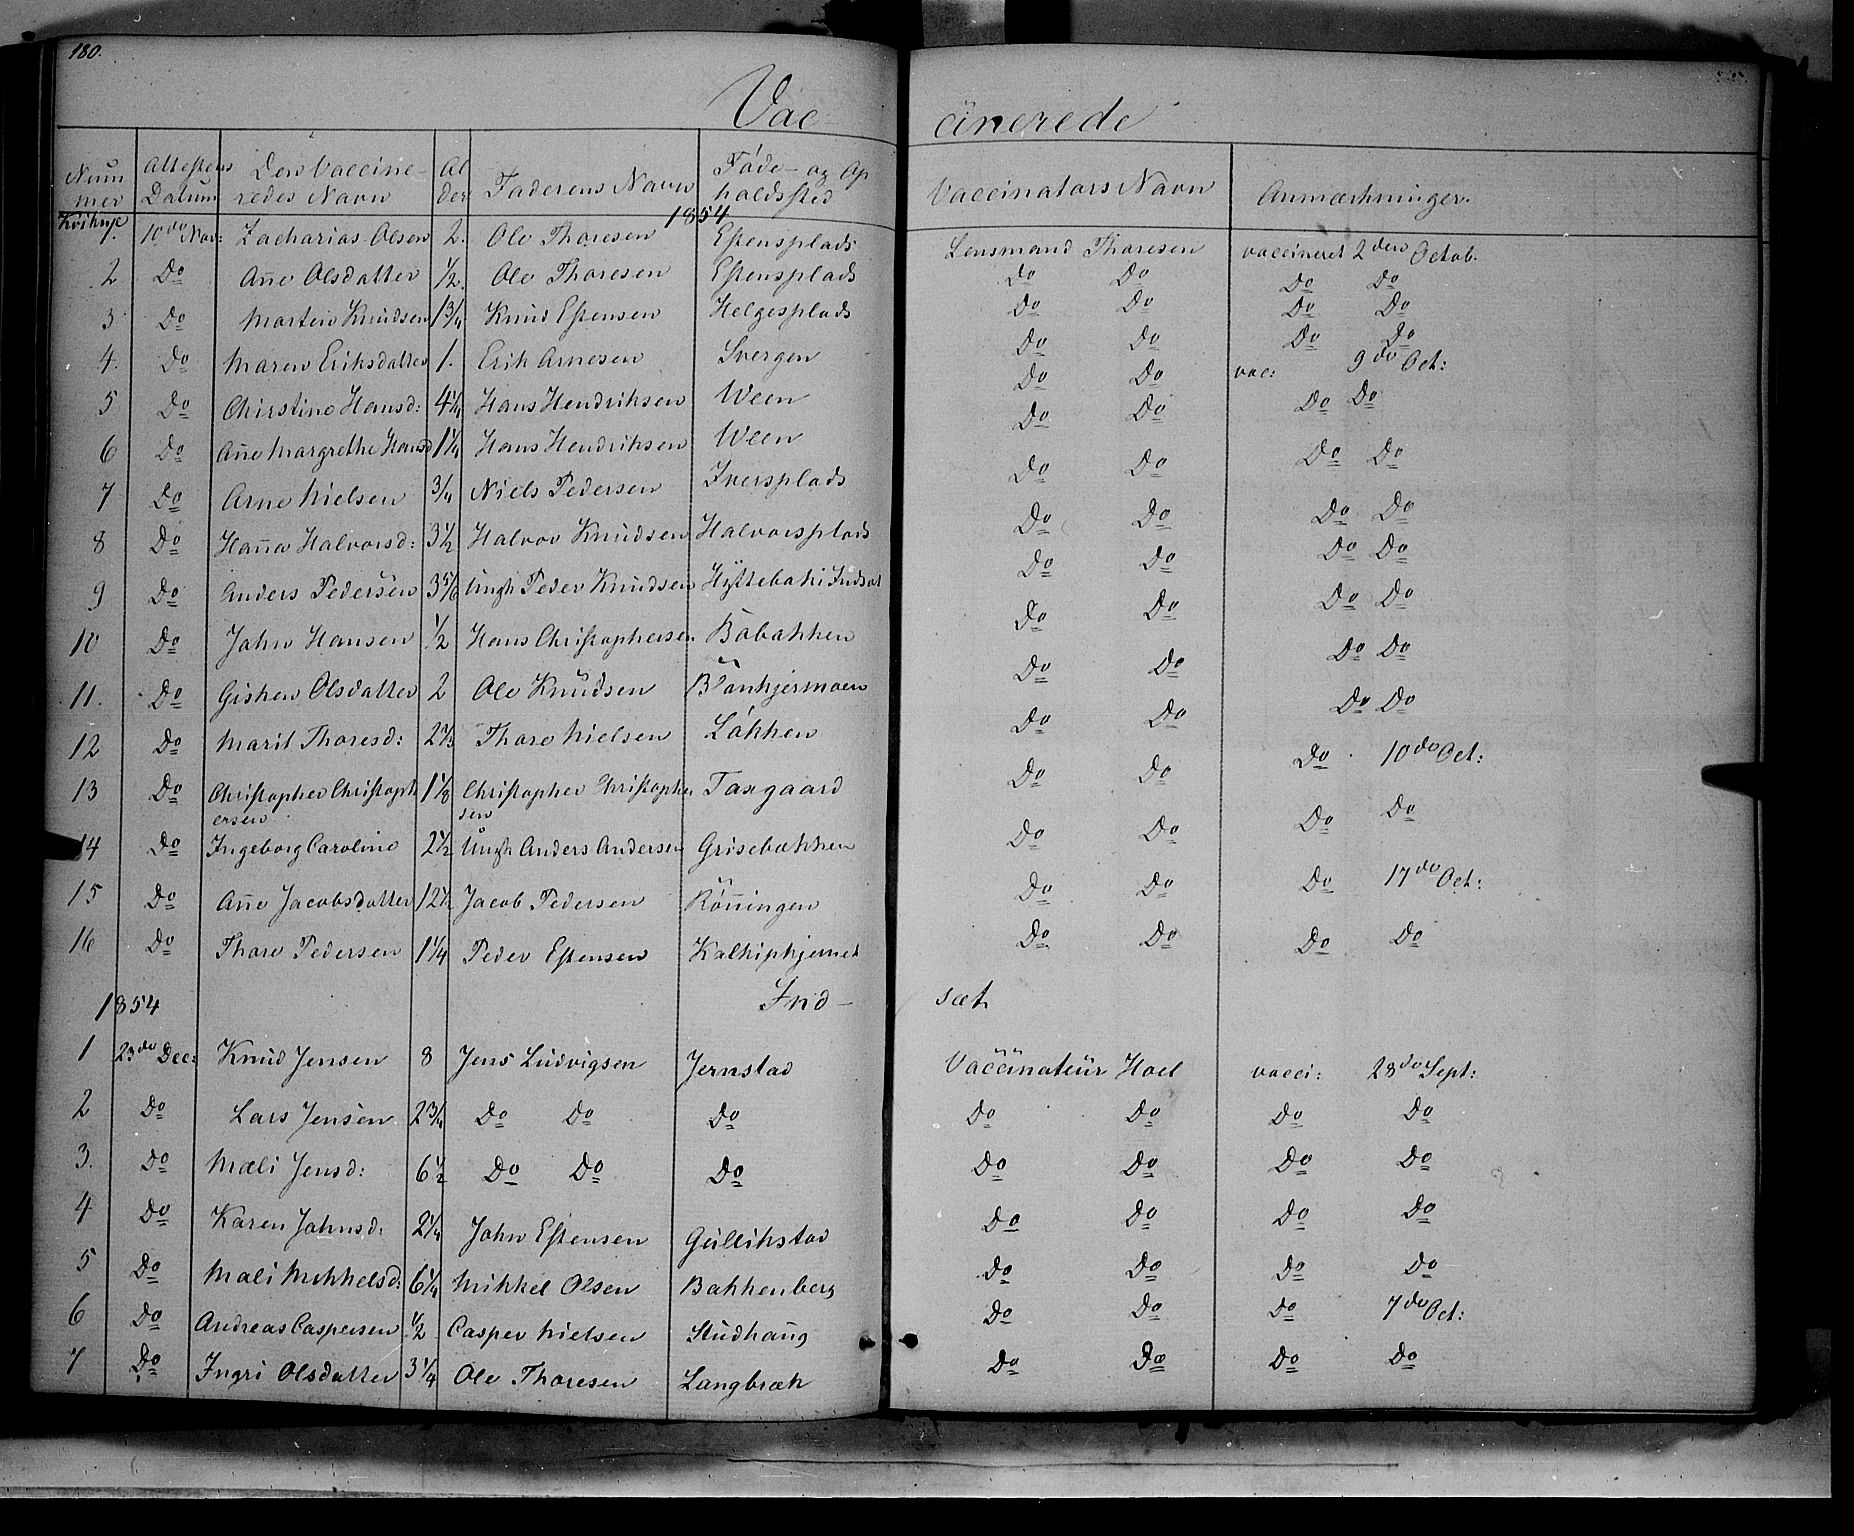 180.
Vac- cinerede
Num mer | Attestens Datum | Den Vaccine- redes Navn | Al der | Faderens Navn | Føde- og Op holdssted | Vaccinators Navn | Anmærkninger.
1854
1. | 10de Nov: | Zacharias Olsen | 2. | Ole Thoresen | Estensplads | Lensmand Thoresen | vaccineret 2den Octob.
2 | Do | Añe Olsdatter | 1/2. | Ole Thoresen | Estensplads | Do Do | Do Do
3 | Do | Morten Knudsen | 1 3/4 | Knud Estensen | Helgesplads | Do Do | Do Do
4. | Do | Maren Eriksdatter | 1. | Erik Arnesen | Svergen | Do Do | Do Do
5 | Do | Chirstine Hansd: | 4 1/4 | Hans Hendriksen | Ween | Do Do | vac: 9de Oct:
6 | Do | Añe Margrethe Hansd | 1 1/4 | Hans Hendriksen | Ween | Do Do | Do Do
7 | Do | Arne Nielsen | 3/4 | Niels Pedersen | Iversplads | Do Do | Do Do
8 | Do | Hañe Halvorsd: | 3 1/2 | Halvor Knudsen | Halvorsplads | Do Do | Do Do
9 | Do | Anders Pedersen | 3 5/6 | Ungk Peder Knudsen | Hyttebak i Indset | Do Do | Do Do
10 | Do | John Hansen | 1/2 | Hans Christophersen | Bobakken | Do Do | Do Do
11. | Do | Gisken Olsdatter | 2 | Ole Knudsen | Bönkjermoen | Do Do | Do Do
12 | Do | Marit Thoresd: | 2 1/3 | Thore Nielsen | Løkken | Do Do | Do Do
13 | Do | Christopher Christoph ersen | 1 1/8 | Christopher Christopher sen | Taxgaard | Do Do | Do 10de Oct:
14 | Do | Ingeborg Caroline | 2 1/2 | Ungk Anders Andersen | Grisebakken | Do Do | Do Do
15 | Do | Añe Jacobsdatter | 12 1/2 | Jacob Pedersen | Röñingen | Do Do | Do 17de Oct:
16 | Do | Thore Pedersen | 1 1/4 | Peder Estensen | Kalkipkjernet | Do Do | Do Do
1854 Ind- sæt
1 | 23de Dec: | Knud Jensen | 8 | Jens Ludvigsen | Jernstad | Vaccinateur Hoel | vacci: 28de Sept:
2 | Do | Lars Jensen | 2 3/4 | Do Do | Do | Do Do | Do Do
3. | Do | Mali Jensd: | 6 1/2 | Do Do | Do | Do Do | Do Do
4 | Do | Karen Johnsd: | 2 1/4 | John Estensen | Gullikstad | Do Do | Do Do
5 | Do | Mali Mikkelsd: | 6 1/4 | Mikkel Olsen | Bakkenberg | Do Do | Do Do
6 | Do | Andreas Caspersen | 1/2 | Casper Nielsen | Studhaug | Do Do | Do 7de Oct:
7 | Do | Ingri Olsdatter | 3 1/4 | Ole Thoresen | Langbræk | Do Do | Do Do